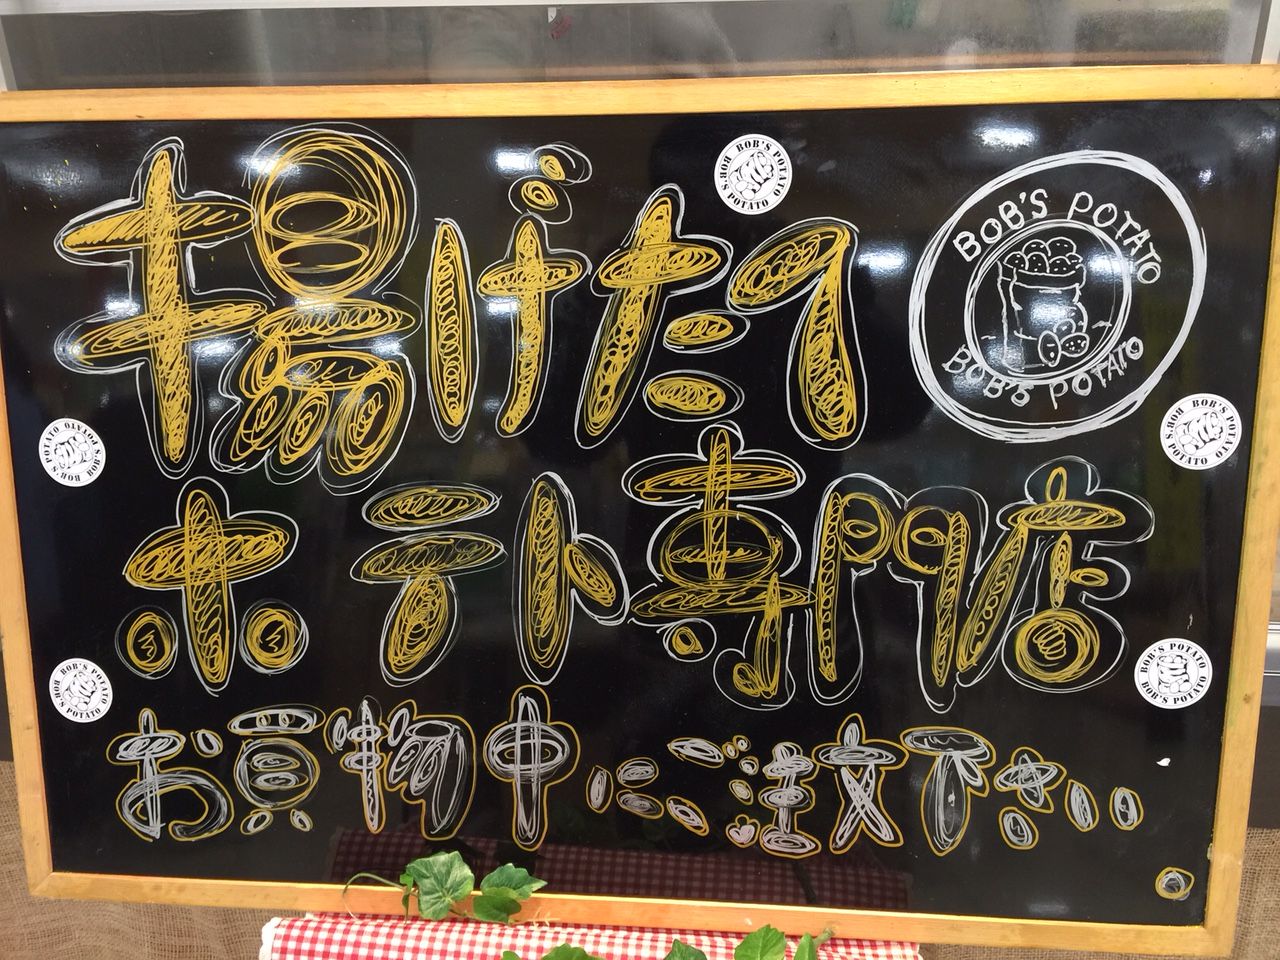 揚げたて
BOB'S POTATO
BOB'S POTATO
ポテト専門店
お買物中にご注文下さい。
BOB'S POTATO
BOB'S POTATO
BOB'S POTATO
BOB'S POTATO
BOB'S POTATO
BOB'S POTATO
BOB'S POTATO
BOB'S POTATO
BOB'S POTATO
BOB'S POTATO